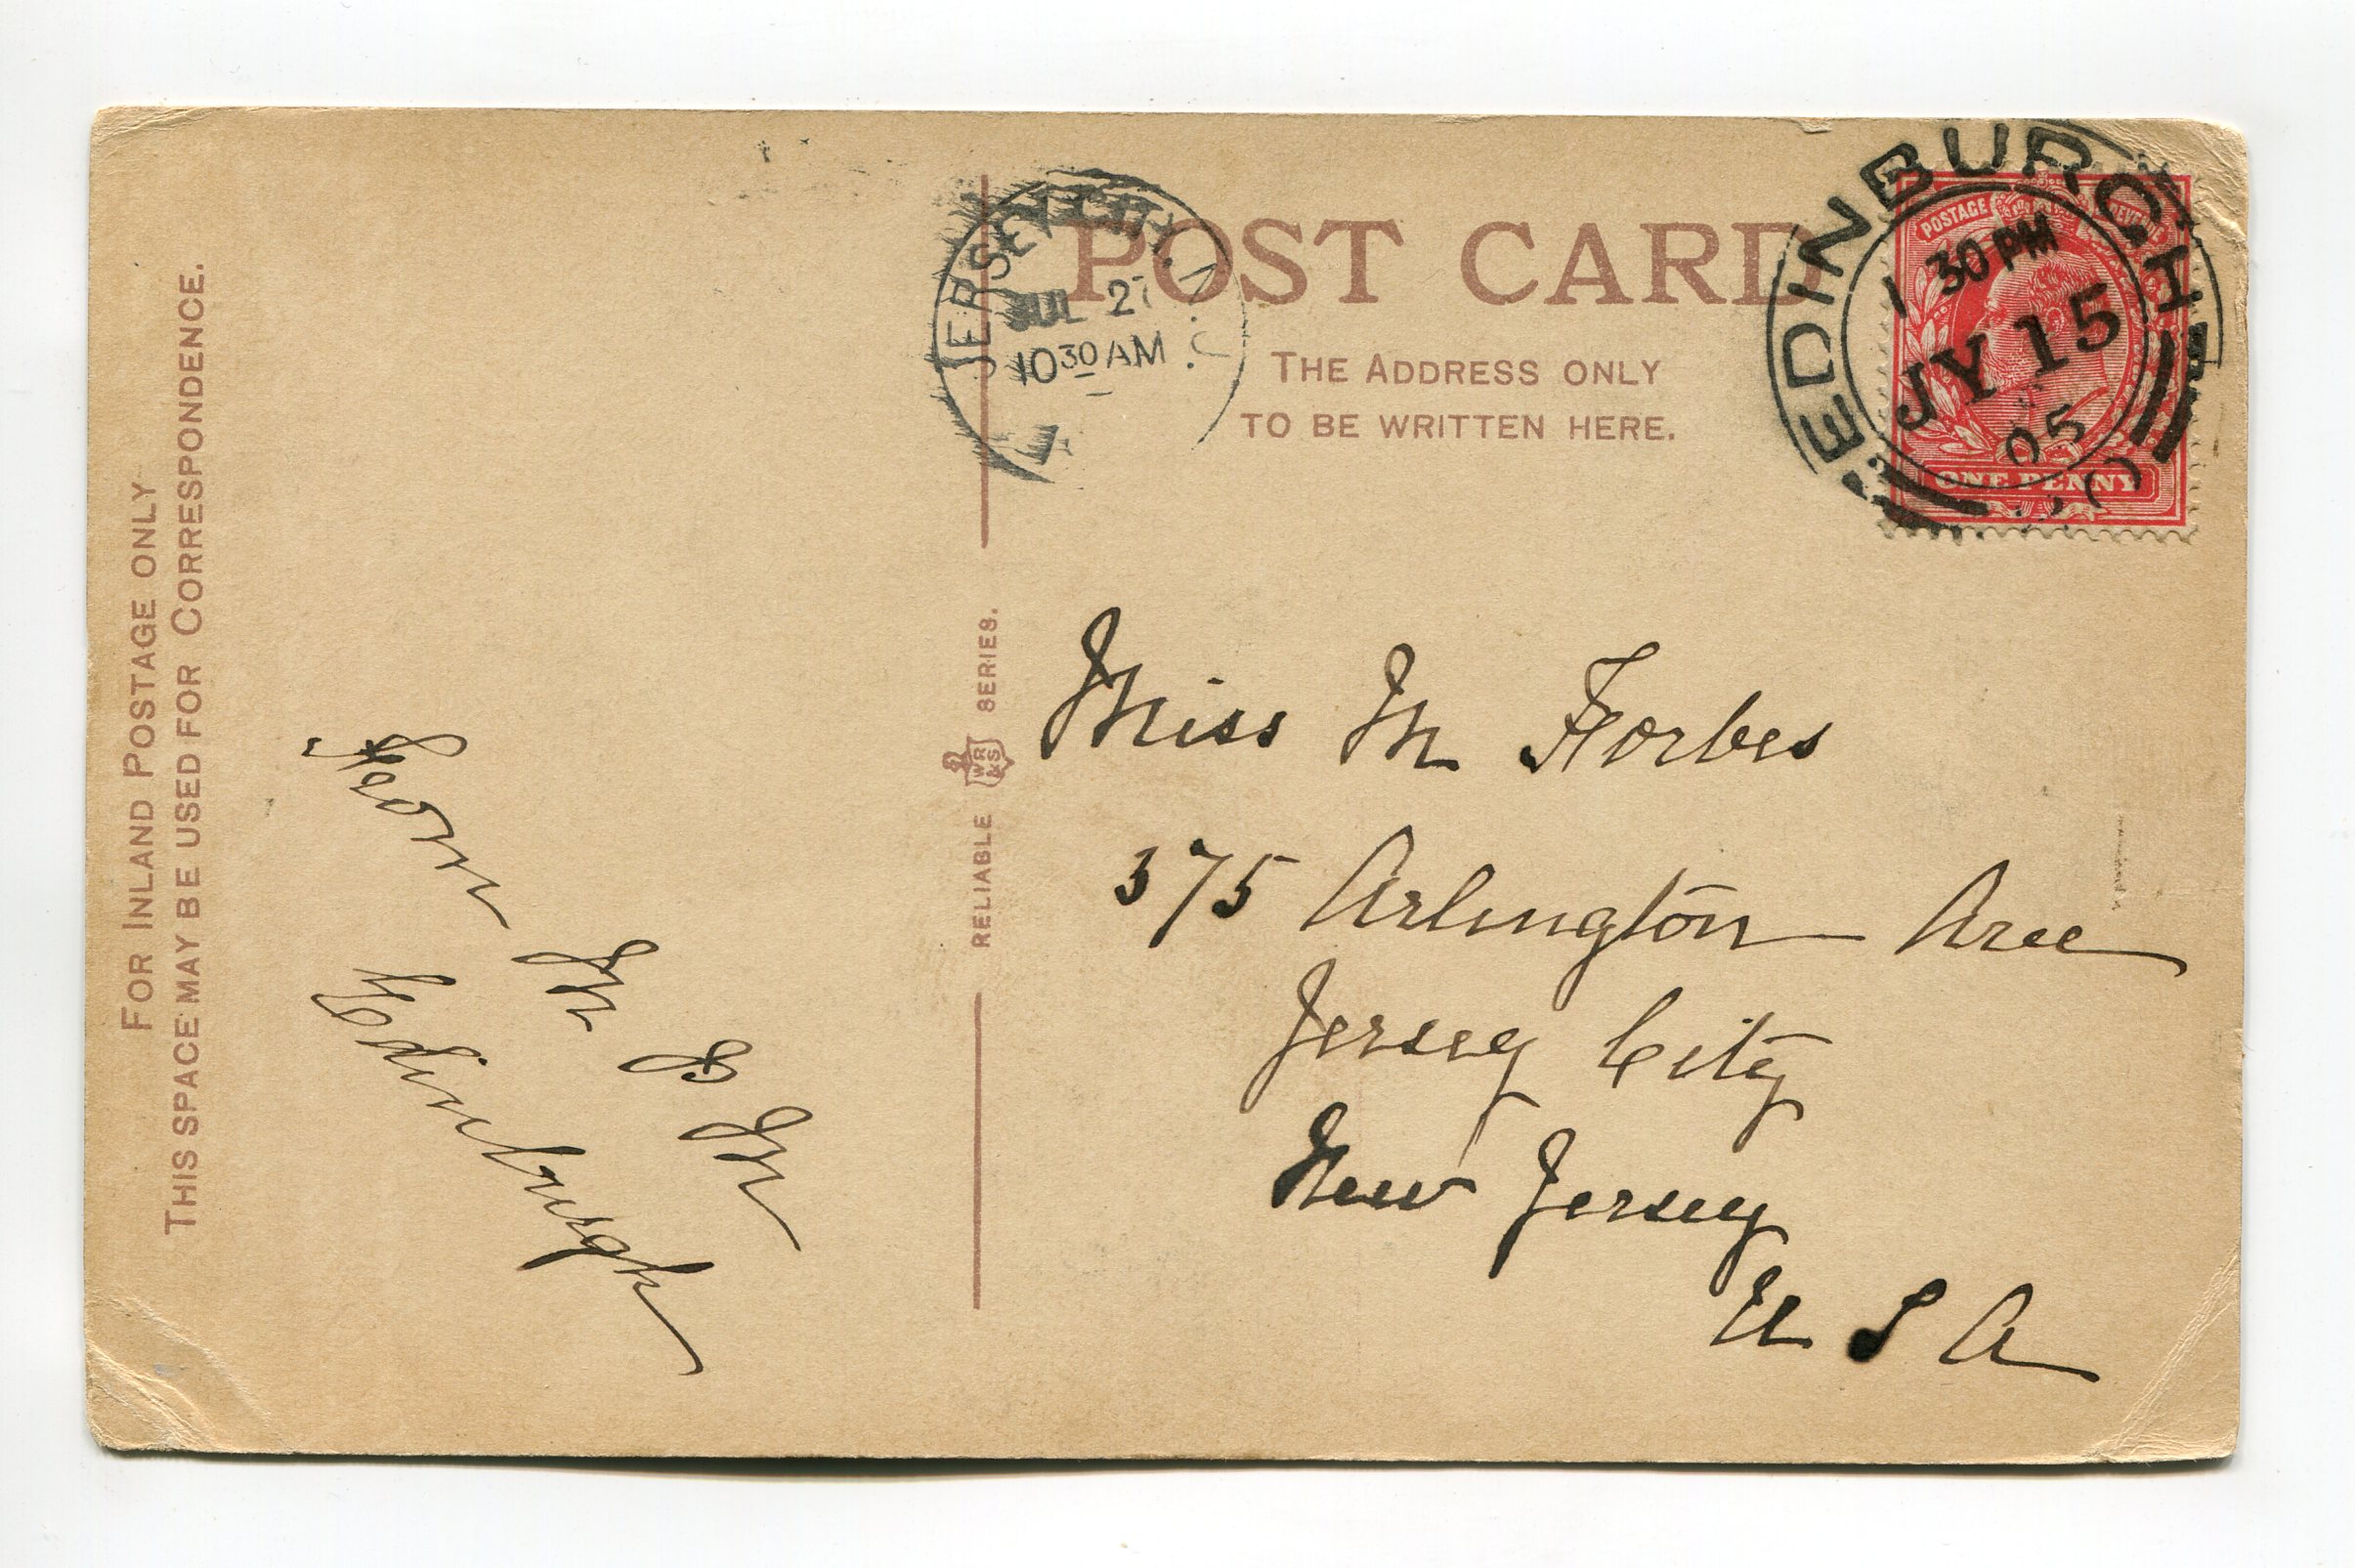 FOR INLAND POSTAGE ONLY
THIS SPACE MAY BE USED FOR CORRESPONDENCE.
From M G M
Edinburgh
RELIABLE WR&S SERIES.
JERSEY CITY. N.J.
JUL 27
10 30 AM
POST CARD
THE ADDRESS ONLY
TO BE WRITTEN HERE.
EDINBURGH
1 30 PM
JY 15
05
POSTAGE REVENUE
ONE PENNY
Miss M Forbes
375 Arlington Ave
Jersey City
New Jersey
U S A